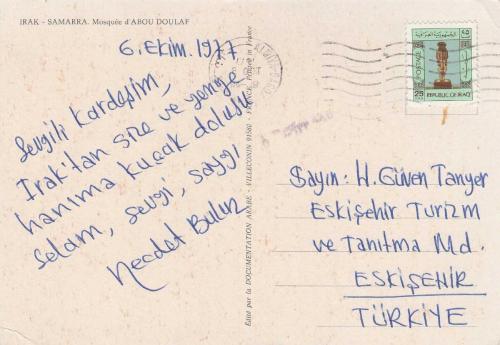 IRAK - SAMARRA. Mosquée d'ABOU DOULAF
6. Ekim. 1977
Sevgili Kardeşim,
Irak'tan size ve yenge
hanıma kucak dolusu
selam, sevgi, saygı
Necdet Buluz
Edité par la DOCUMENTATION ARABE - VILLECONIN 91580 - FRANCE. Printed in France
POSTAGE
25
REPUBLIC OF IRAQ
Sayın: H. Güven Tanyer
Eskişehir Turizm
ve Tanıtma Md.
ESKİŞEHİR
TÜRKİYE